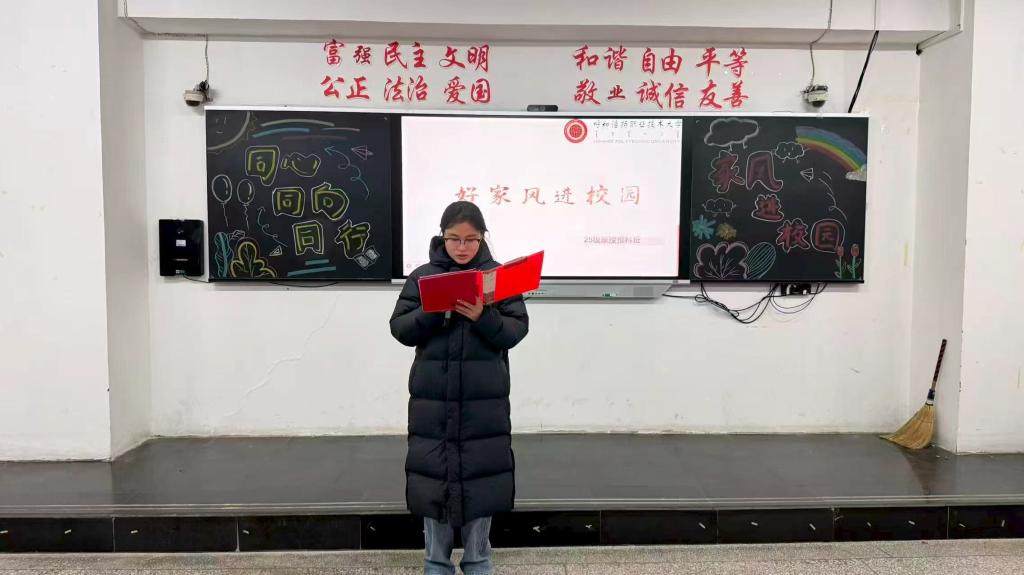 富强 民主 文明
公正 法治 爱国
和谐 自由 平等
敬业 诚信 友善
同心
同向
同行
呼和浩特职业技术大学
HOHHOT POLYTECHNIC UNIVERSITY
好家风进校园
家风
进
校园